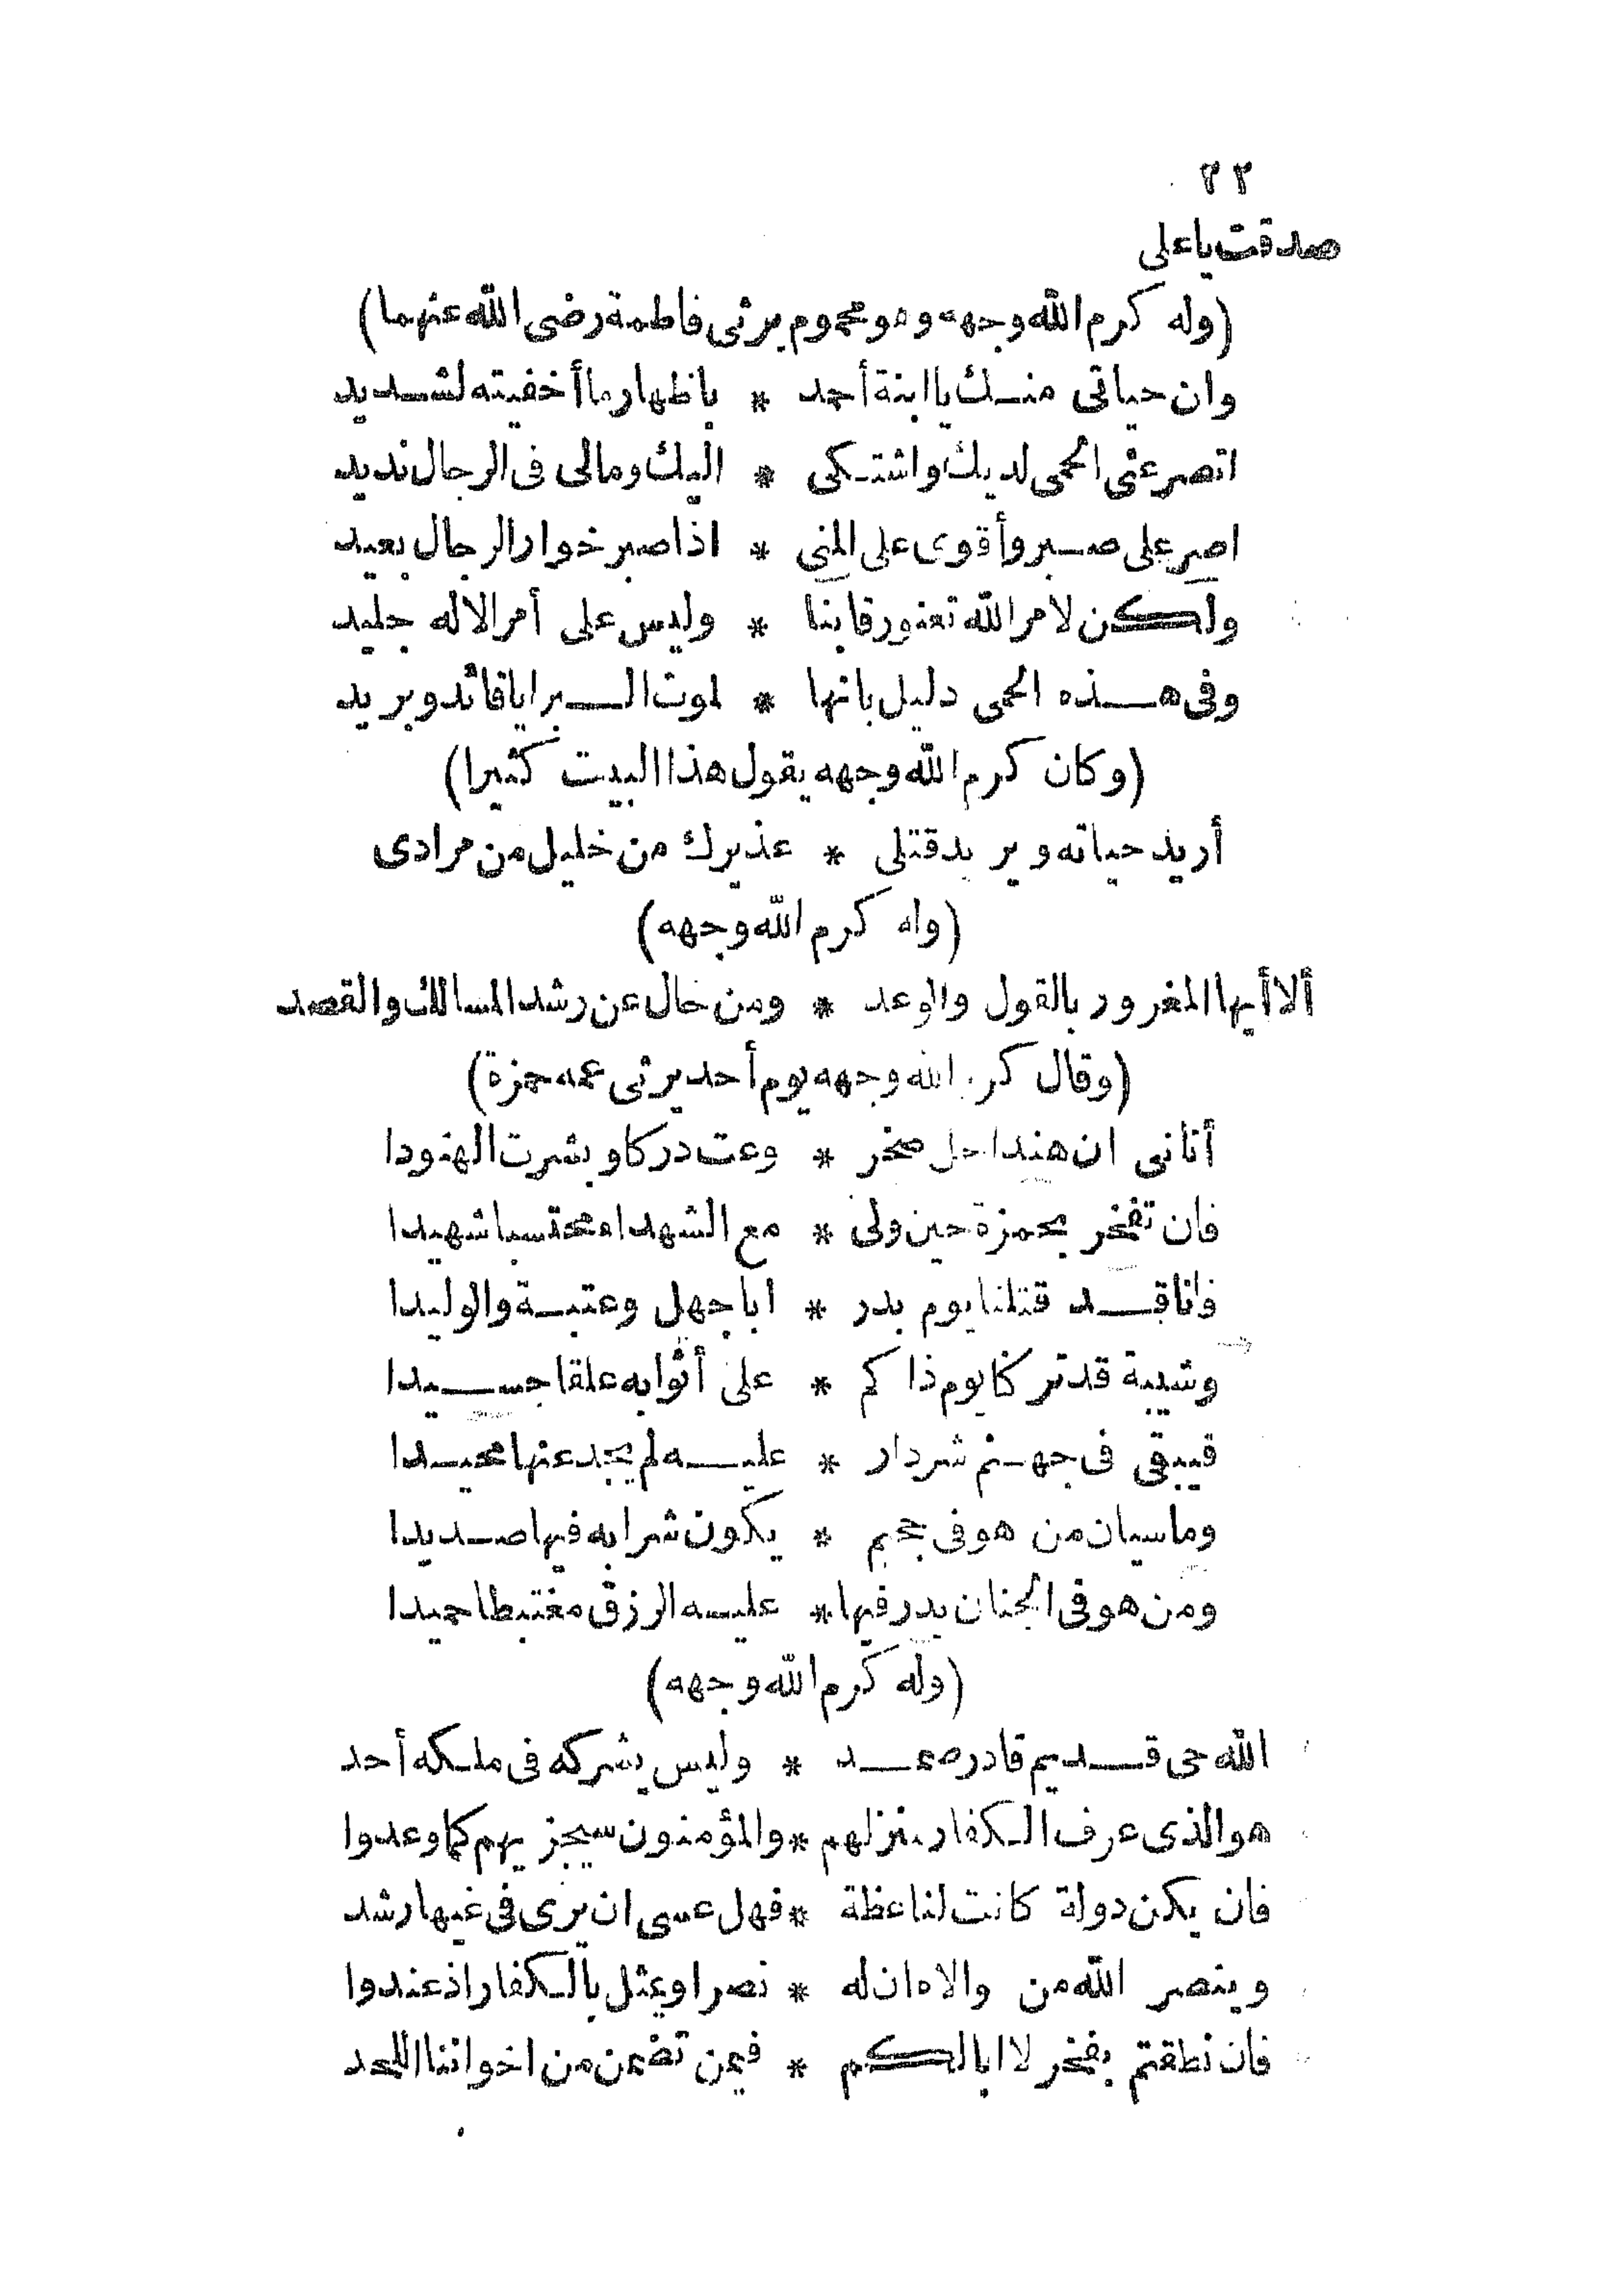 ٢٢
صدقت ياعلى
(وله كرم الله وجهه وهو محموم يرثى فاطمة رضى الله عنهما)
وان حياتى منك يا ابنة أحمد * باظهار ما أخفيته لشديد
اتصرعنى الحمى لديك واشتكى * اليك ومالى فى الرجال نديد
اصر على صبر وأقوى على المنى * اذا صبر خوار الرجال بعيد
ولكن لامر الله تعنو رقابنا * وليس على أمر الاله جليد
وفى هذه الحمى دليل بانها * لموت البرايا قائد وبريد
(وكان كرم الله وجهه يقول هذا البيت كثيرا)
أريد حياته ويريد قتلى * عذيرك من خليل من مرادى
(وله كرم الله وجهه)
ألا أيها المغرور بالقول والوعد * ومن حال عن رشد المسالك والقصد
(وقال كرم الله وجهه يوم أحد يرثى عمه حمزة)
أتانى ان هندا حل صخر * دعت دركا وبشرت الهنودا
فان تفخر بحمزة حين ولى * مع الشهداء محتسبا شهيدا
فانا قد قتلنا يوم بدر * ابا جهل وعتبة والوليدا
وشيبة قد تركنا يوم ذاكم * على أثوابه علقا جسيدا
فيبقى فى جهنم شر دار * عليه لم يجد عنها محيدا
وما سيان من هو فى جحيم * يكون شرابه فيها صديدا
ومن هو فى الجنان يدر فيها * عليه الرزق مغتبطا حميدا
(وله كرم الله وجهه)
الله حى قديم قادر صمد * وليس يشركه فى ملكه أحد
هو الذى عرف الكفار منزلهم * والمؤمنون سيجزيهم كما وعدوا
فان يكن دولة كانت لنا عظة * فهل عسى ان يرى فى غيها رشد
وينصر الله من والاه ان له * نصرا ويمثل بالكفار اذ عندوا
فان نطقتم بفخر لا ابا لكم * فيمن تضمن من اخواننا اللحد